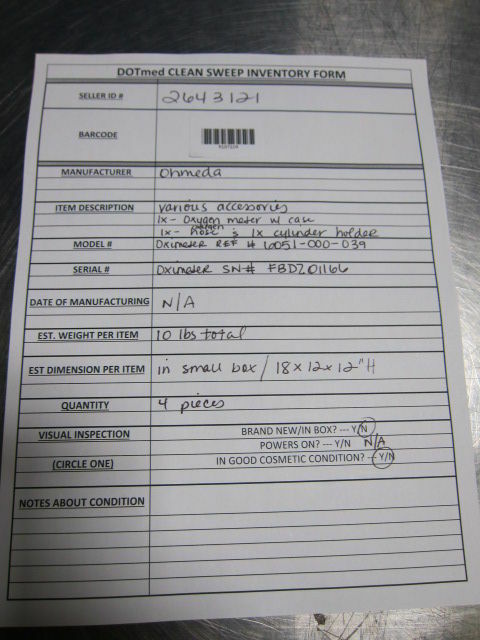 DOTmed CLEAN SWEEP INVENTORY FORM
SELLER ID # 2643121
BARCODE
MANUFACTURER Ohmeda
ITEM DESCRIPTION various accessories
1x - Oxygen meter w case
1x - oxygen hose & 1x cylinder holder
MODEL # Oximeter REF # 6051-000-039
SERIAL # Oximeter SN# FBDZ01166
DATE OF MANUFACTURING N/A
EST. WEIGHT PER ITEM 10 lbs total
EST DIMENSION PER ITEM in small box / 18x12x12"H
QUANTITY 4 pieces
VISUAL INSPECTION BRAND NEW/IN BOX? --- Y/N
POWERS ON? --- Y/N N/A
(CIRCLE ONE) IN GOOD COSMETIC CONDITION? --- Y/N
NOTES ABOUT CONDITION